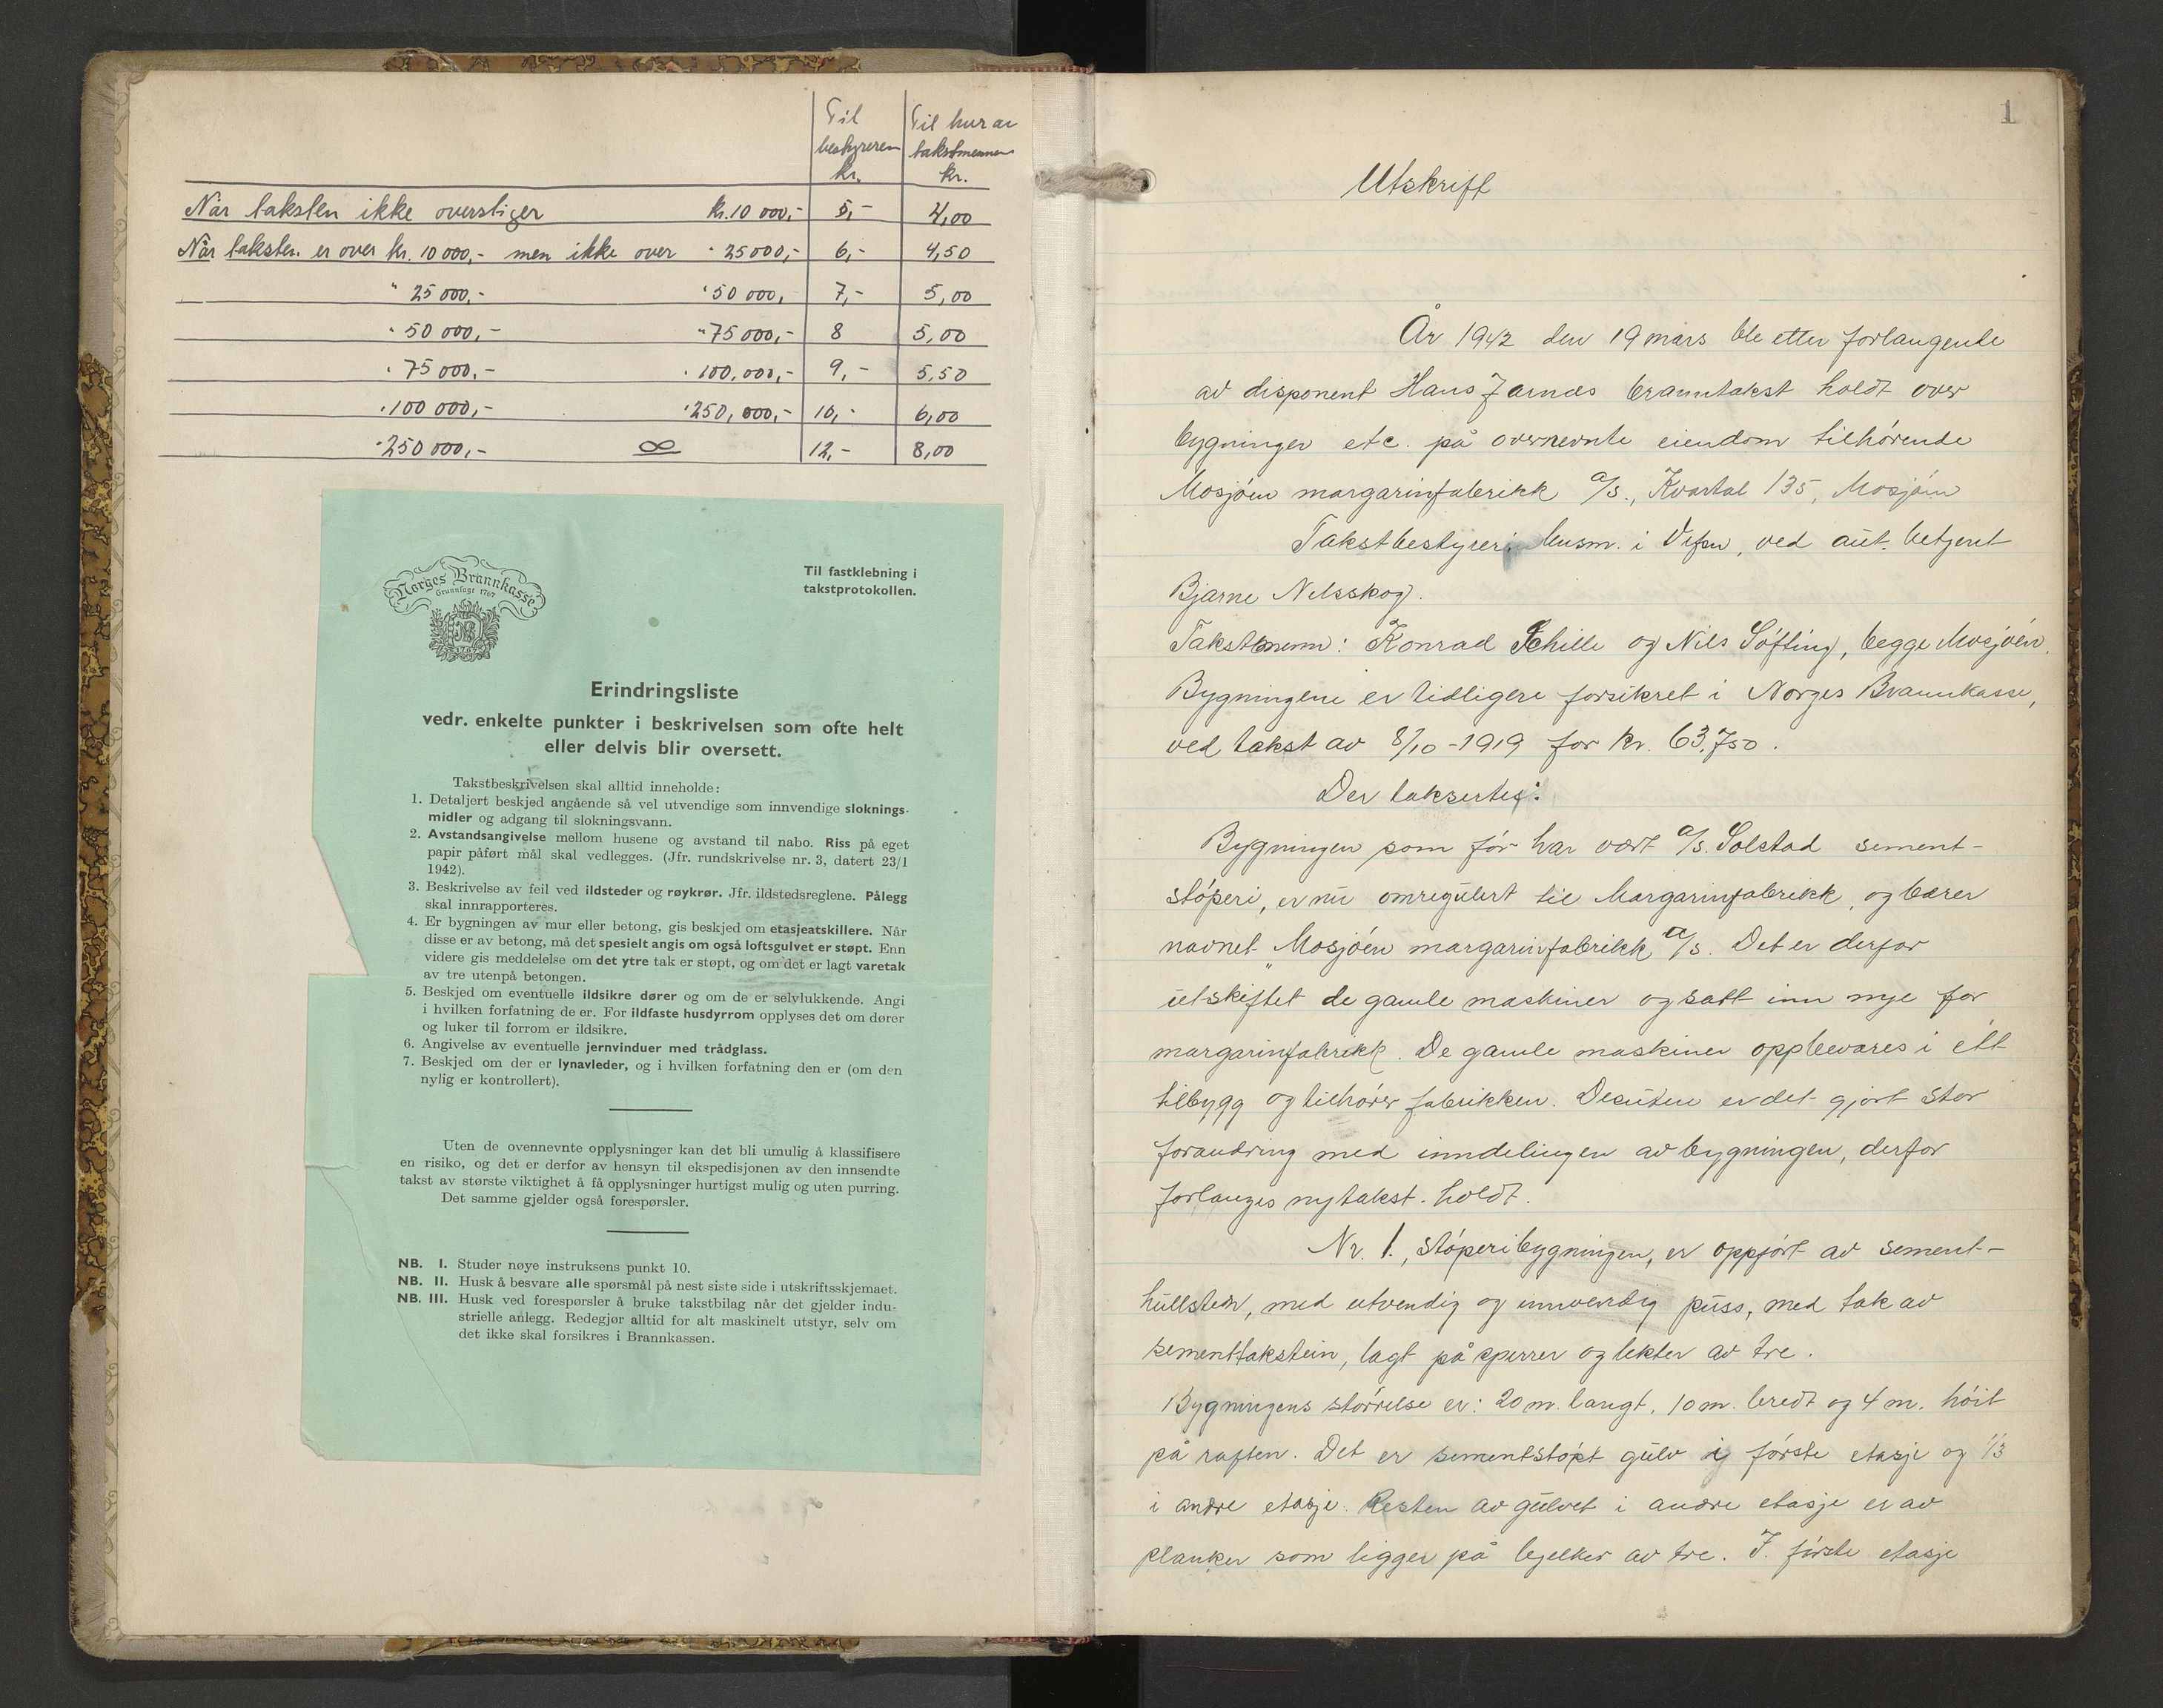 Til
bestyreren
kr.
Til hver av
takstmennene
kr.
Når taksten ikke overstiger kr. 10 000,- 5,- 4,00
Når taksten er over kr. 10 000,- men ikke over " 25 000,- 6,- 4,50
" 25 000,- " 50 000, 7,- 5,00
" 50 000,- " 75 000,- 8 5,00
" 75 000,- " 100,000,- 9,- 5,50
" 100 000,- " 250,000,- 10,- 6,00
" 250 000,- ∞ 12,- 8,00
Norges Brannkasse
Grunnlagt 1767
Til fastklebning i
takstprotokollen.
Erindringsliste
vedr. enkelte punkter i beskrivelsen som ofte helt
eller delvis blir oversett.
Takstbeskrivelsen skal alltid inneholde:
1. Detaljert beskjed angående så vel utvendige som innvendige sloknings-
midler og adgang til slokningsvann.
2. Avstandsangivelse mellom husene og avstand til nabo. Riss på eget
papir påført mål skal vedlegges. (Jfr. rundskrivelse nr. 3, datert 23/1
1942).
3. Beskrivelse av feil ved ildsteder og røykrør. Jfr. ildstedsreglene. Pålegg
skal innrapporteres.
4. Er bygningen av mur eller betong, gis beskjed om etasjeatskillere. Når
disse er av betong, må det spesielt angis om også loftsgulvet er støpt. Enn
videre gis meddelelse om det ytre tak er støpt, og om det er lagt varetak
av tre utenpå betongen.
5. Beskjed om eventuelle ildsikre dører og om de er selvlukkende. Angi
i hvilken forfatning de er. For ildfaste husdyrrom opplyses det om dører
og luker til forrom er ildsikre.
6. Angivelse av eventuelle jernvinduer med trådglass.
7. Beskjed om der er lynavleder, og i hvilken forfatning den er (om den
nylig er kontrollert).
Uten de ovennevnte opplysninger kan det bli umulig å klassifisere
en risiko, og det er derfor av hensyn til ekspedisjonen av den innsendte
takst av største viktighet å få opplysninger hurtigst mulig og uten purring.
Det samme gjelder også forespørsler.
NB. I. Studer nøye instruksens punkt 10.
NB. II. Husk å besvare alle spørsmål på nest siste side i utskriftsskjemaet.
NB. III. Husk ved forespørsler å bruke takstbilag når det gjelder indu-
strielle anlegg. Redegjør alltid for alt maskinelt utstyr, selv om
det ikke skal forsikres i Brannkassen.
1
Utskrift
År 1942 den 19 mars ble etter forlangende
av disponent Hans Jarnes branntakst holdt over
bygninger etc. på overnevnte eiendom tilhørende
Mosjøen margarinfabrikk a/s., Kvartal 135, Mosjøen
Takstbestyrer: lensm. i Vefsn, ved aut. betjent
Bjarne Nilsskog.
Takstmenn: Konrad Schille og Nils Søfting, begge Mosjøen.
Bygningene er tidligere forsikret i Norges Brannkasse,
ved takst av 8/10-1919 for kr. 63.750.
Der taksertes:
Bygningen som før har vært a/s. Solstad sement-
støperi, er nu omregulert til Margarinfabrikk, og bærer
navnet „Mosjøen margarinfabrikk a/s. Det er derfor
utskiftet de gamle maskiner og satt inn nye for
margarinfabrikk. De gamle maskiner oppbevares i ett
tilbygg og tilhører fabrikken. Desuten er det gjort stor
forandring med inndelingen av bygningen, derfor
forlanges ny takst. holdt.
Nr. 1., Støperibygningen, er oppført av sement-
hullstein, med utvendig og innvendig puss, med tak av
sementtakstein, lagt på sperrer og lekter av tre.
Bygningens størrelse er: 20 m. langt, 10 m. bredt og 4 m. høit
på raften. Det er sementstøpt gulv i første etasje og 1/3
i andre etasje. Resten av gulvet i andre etasje er av
planker som ligger på bjelker av tre. I. første etasje